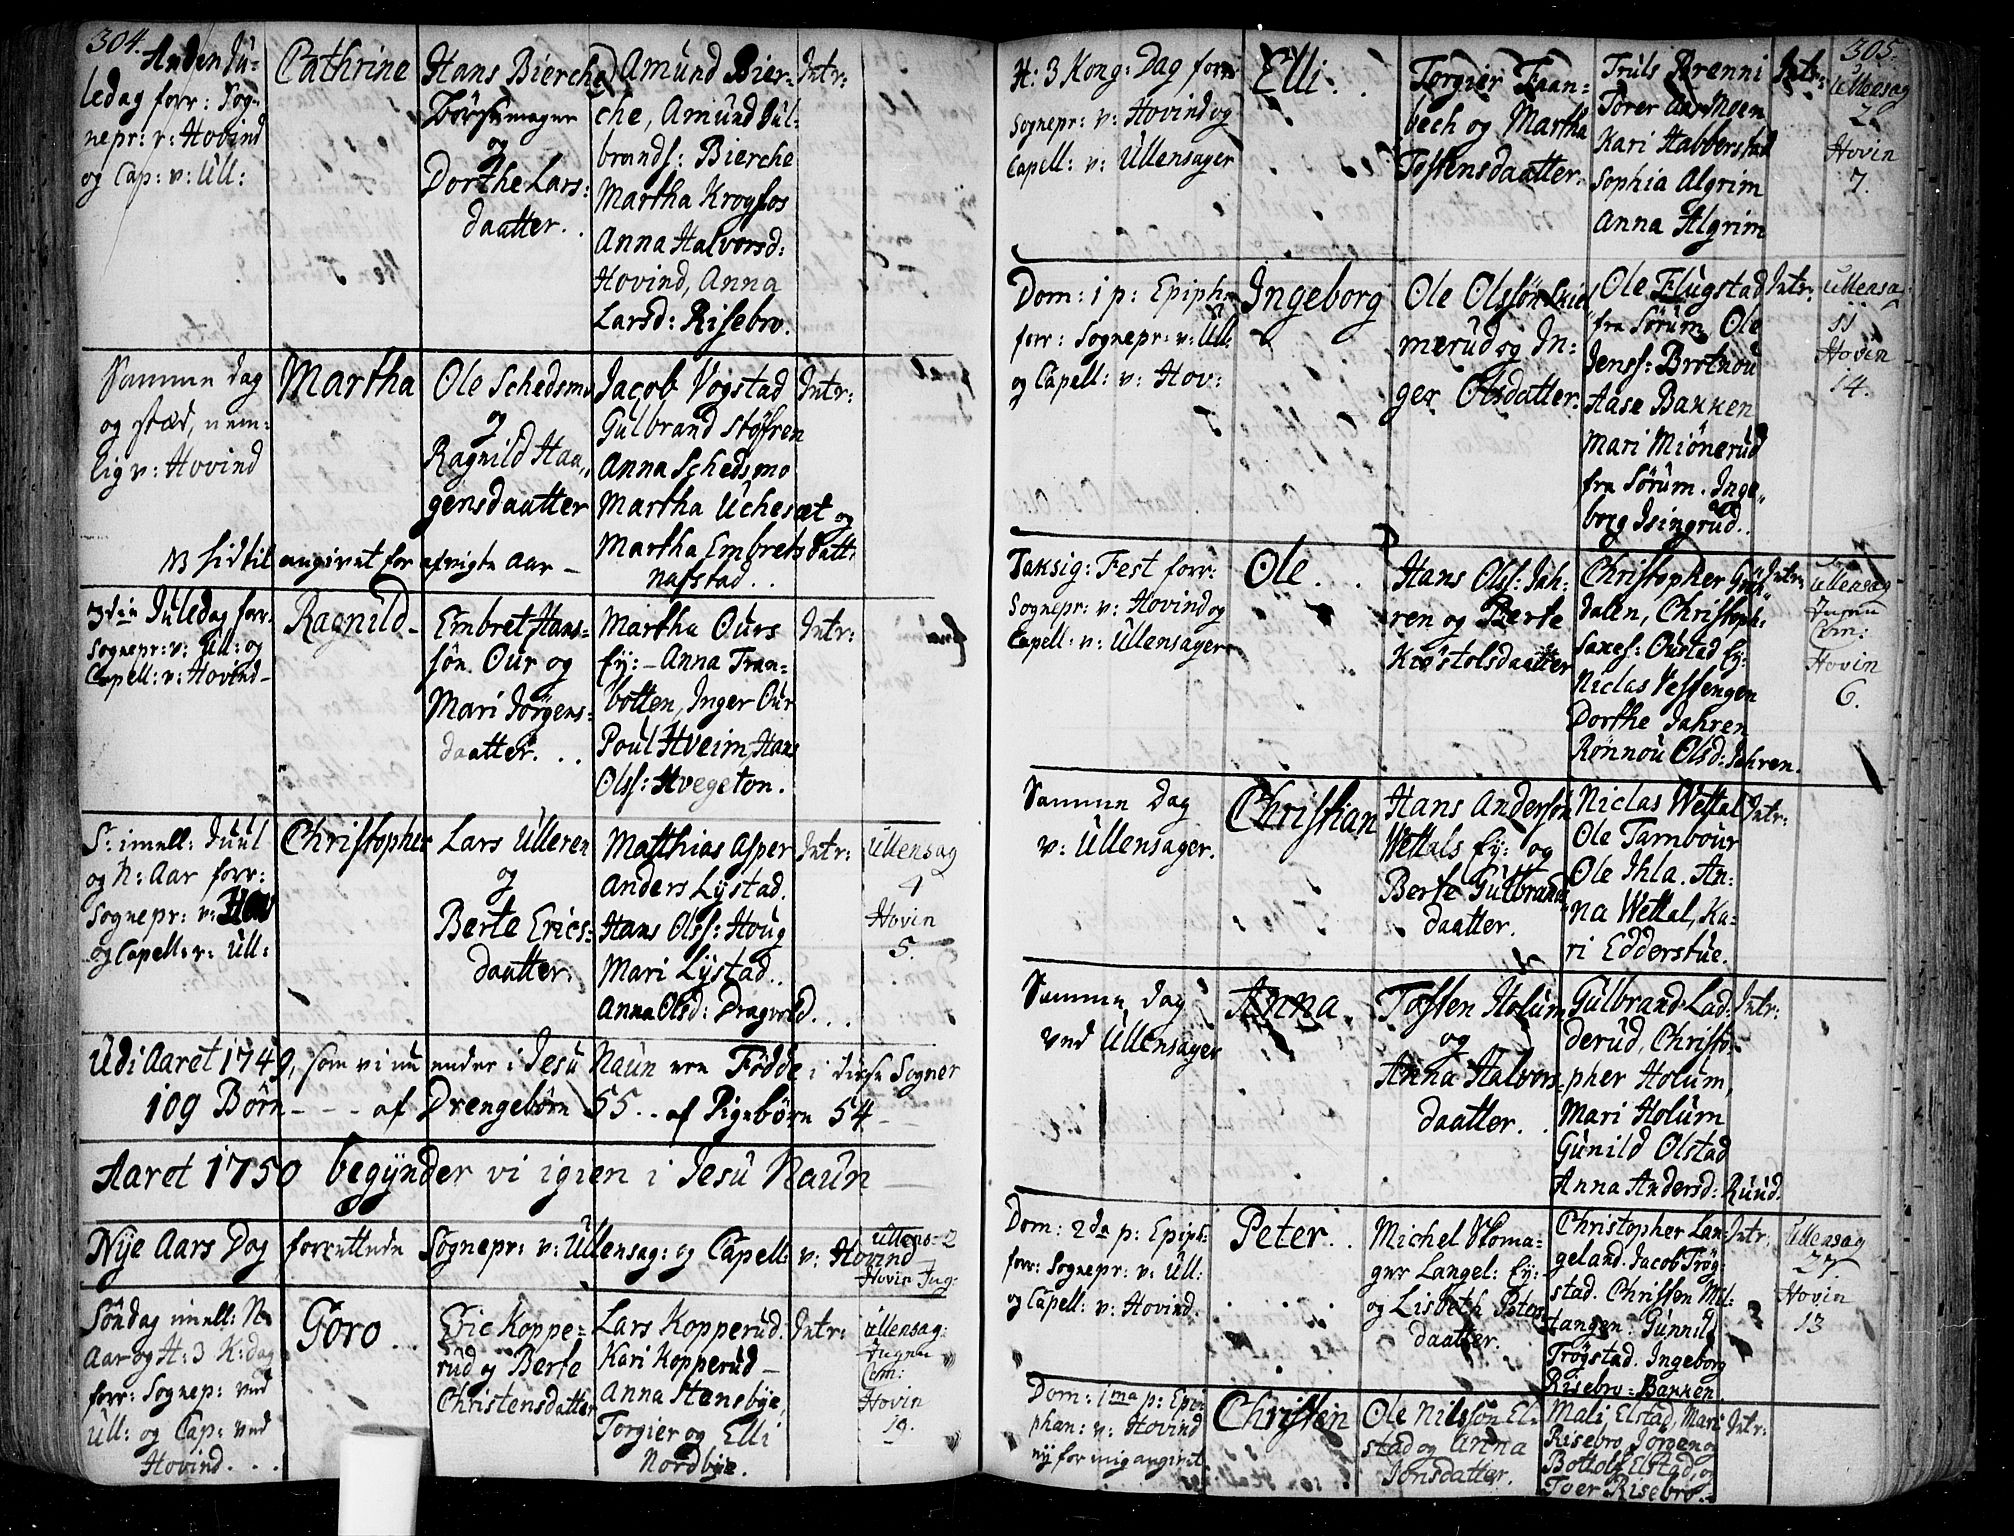 304.
Anden Ju-
ledag forr: Sog-
nepr: v: Hovind
og Cap: v: Ull:
Cathrine
Hans Bierche
og
Dorthe Lars-
daatter.
Amund Bier-
che, Amund Gul-
brands: Bierche
Martha Krogfos
Anna Halvorsd:
Hovind, Anna
Larsd: Risebro.
Intr:
Samme dag
og stæd, nem-
lig v: Hovind
Martha
Ole Schedsmo
og
Ragnild Haa-
gensdaatter
Jacob Vogstad
Gulbrand Støfren
Anna Schedsmo
Martha Uchesæt og
Martha Embrets datt:
Nafstad..
Intr:
angivet for afvigte Aar -
3die Juledag forr:
Sognepr: v: Ull: og
Capell: v: Hovind -
Ragnild -
Embret Hans-
søn Our og
Mari Jørgens-
daatter...
Martha Ours
Ey: - Anna Tran-
botten, Inger Our
Poul Hveim, Hans
Olss: Hvegeton.
Intr:
S: imell: Juul
og N: Aar forr:
Sognepr: v: Hov
og Capell: v: Ull:
Christopher
Lars Ulleren
og
Berte Erics-
daatter.
Matthias Asper
Anders Lystad.
Hans Olss: Houg
Mari Lystad..
Anna Olsd: Dragvold...
Intr:
Ullensag
4
Hovin
5.
Udi Aaret 1749, som vi nu ender i Jesu Naun ere Fødde i disse Sogner
109 Børn - - - af Drengebørn 55.. af Pigebørn 54 -
Aaret 1750 begynder vi igien i Jesu Naun
Nye Aars Dag forrettede Sognepr: v: Ullensag: og Capell: v: Hovind
Ullens- 2
Hovin Ing:
Søndag imell: N:
Aar og H: 3 K: dag
forr: Sognep: ved
Ull: og Cap: ved
Hovind...
Goro..
Eric Koppe-
rud og Berte
Christensdatter
Lars Kopperud.
Kari Kopperud -
Anna Stensbye,
Torgier og Elli
Nordbye.
Intr:
Ullensag:
Ingen
Com:
Hovin
19.
305.
H: 3 Kong: Dag forr:
Sognepr: v: Hovind og
Capell: v: Ullensager
Elli..
Torgier Traan-
bech og Martha
Tostensdaatter.
Truls Brenni
Torer Aas Moen
Kari Habberstad
Sophia Algrim
Anna Algrim
Intr:
Ullensag
2
Hovin
7.
Dom: 1 p: Epiph:
forr: Sognepr: v: Ull:
og Capell: v: Hov:
Ingeborg
Ole Olssøn Skie-
merud og In-
ger Olsdatter.
Ole Flugstad
fra Sørum, Ole
Jenss: Brotnou
Aase Bakken
Mari Miønerud
fra Sørum. Inge-
borg Isingrud.
Intr:
Ullensa:
11
Hovin
14.
Taksig: Fest forr:
Sognepr: v: Hovind og
Capell: v: Ullensager
Ole..
Hans Olss: Jah-
ren og Berte
Kiøstolsdaatter
Christopher
dalen, Christoph:
Saxes: Oustad Ey:
Niclas Vessengen
Dorthe Jahren
Rønnou Olsd: Jahren.
Intr:
Ullensag
Ingen
Com:
Hovin
6.
Samme dag
v: Ullensager.
Christian
Hans Anderson
Wettals Ey: og
Berte Gulbrands-
daatter.
Niclas Wettal
Ole Tambour
Ole Ihla. An-
na Wettal, Ka-
ri Edderstue.
Intr:
Samme dag
ved Ullensager
Anna.
Tosten Holum
og
Anna Halvors-
daatter..
Gulbrand Lad-
derud, Christo-
pher Holum,
Mari Holum
Gunild Olstad
Anna Andersd: Ruud.
Intr:
Dom: 2da p: Epiph:
forr: Sognepr: v: Ull:
og Capell: v: Hovind.
Peter..
Michel Skoma-
ger Langel: Ey:
og Lisbeth Peters
daatter.
Christopher Lan-
geland. Jacob Trøg-
stad. Christen Mel-
tangen. Gunnild
Trøgstad. Ingeborg
Risebro-Bakken.
Intr:
Ullensag
27
Hovin
13
Dom: 1ma p: Epi-
phan: v: Hovind
ey for mig angivet
Christen
Ole Nilssøn El-
stad og Anna
Jonsdatter.
Mali Elstad, Mari
Risebro, Jørgen og
Bottolf Elstad, og
Toer Risebro..
Intr: